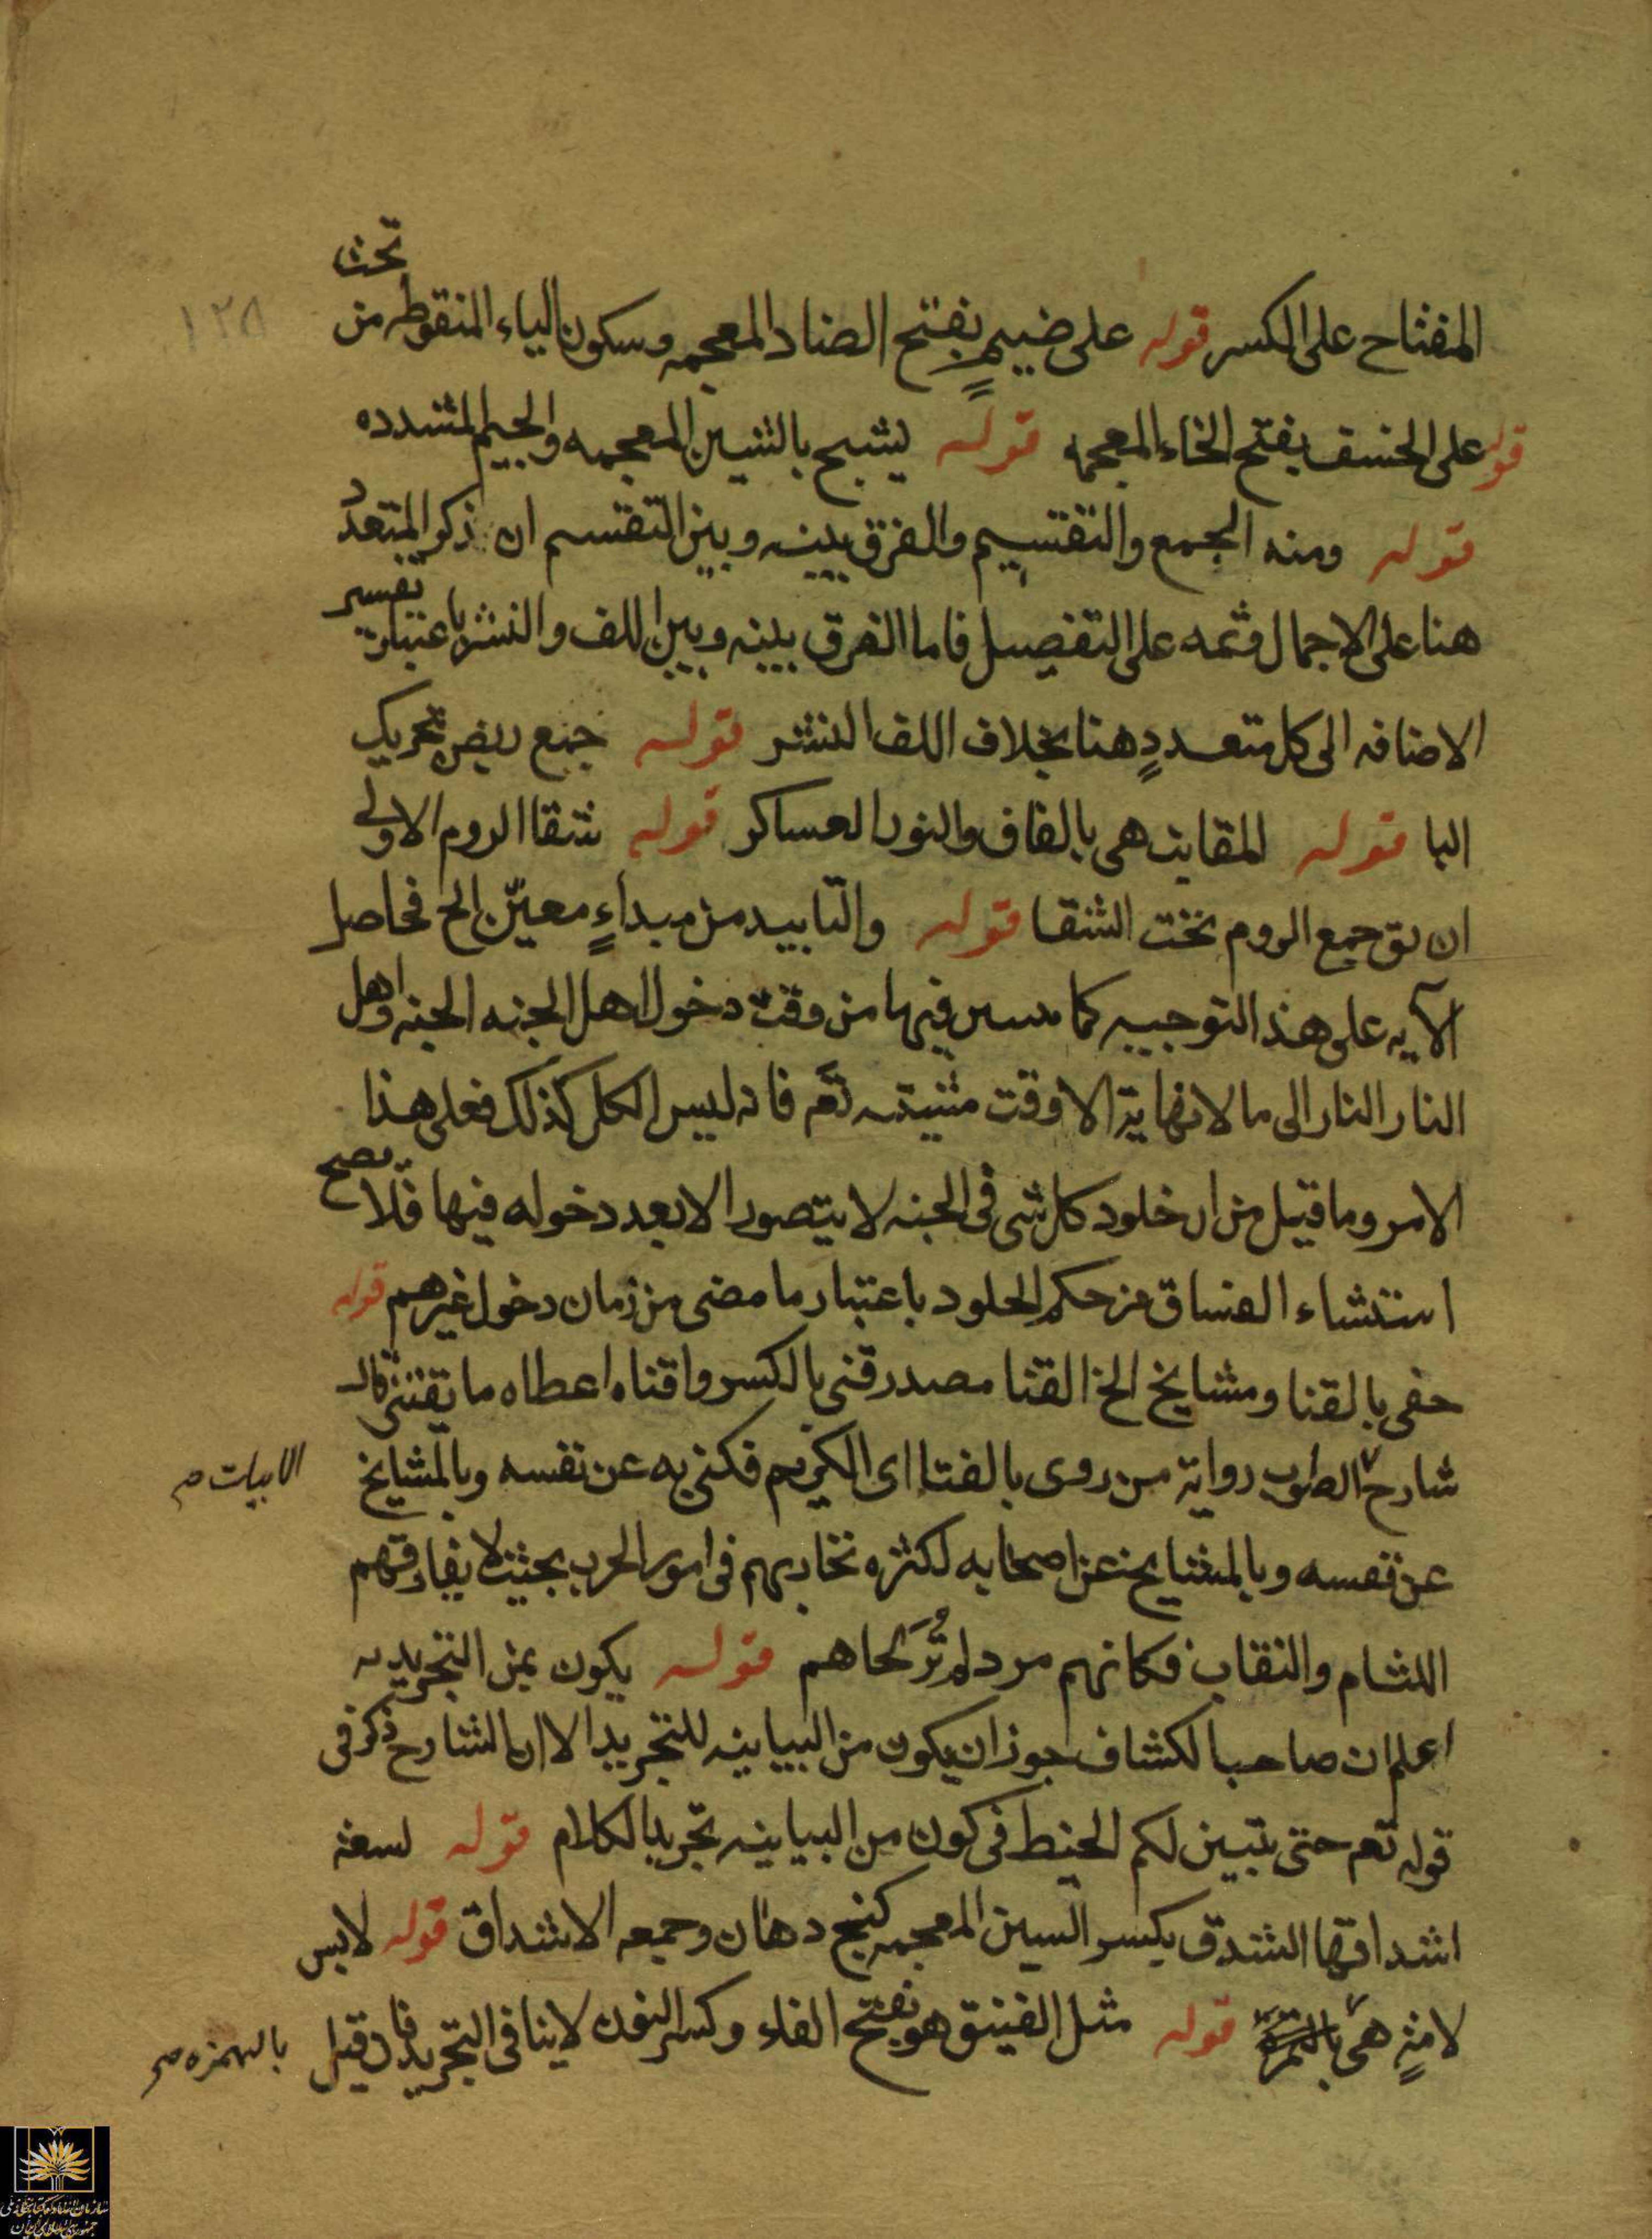 تحت
المفتاح على الكسر قوله على ضيمٍ بفتح الضاد المعجمه وسكون الياء المنقوطه من
قوله على الخسف بفتح الخاء المعجمه قوله يشج بالشين المعجمه والجيم المشدده
قوله ومنه الجمع والتقسيم والفرق بينه وبين التقسم ان ذكر المتعدد
هنا على الاجمال وثمه على التفصيل فاما الفرق بينه وبين اللف والنشر باعتبار تفسير
الاضافه الى كل متعددٍ هنا بخلاف اللف النشر قوله جمع ربض تحريك
البا قوله المقانب هى بالقاف والنون العساكر قوله شقا الروم الاولى
ان يق جمع الروم تحت الشقا قوله والتابيد من مبداءٍ معيّن الخ فحاصل
الآيه على هذ التوجيه كما فيها من وقت دخول اهل الجنه الجنه واهل
النار النار الى ما لا نهاية الا وقت مشيته تعم فانه ليس الكل كذلك فعلى هذا
الامر وما قيل من ان خلود كل شى فى الجنه لا يتصور الا بعد دخوله فيها فلا يصح
استثناء الفساق من حكم الخلود باعتبار ما مضى من زمان دخول غيرهم قوله
حقى بالقنا ومشايخ الخ القنا مصدر قنى بالكسر واقناه اعطاه ما يقتنى قال
شارح الطوب رواية من روى بالفتا اى الكريم فكنى به عن نفسه وبالمشايخ
الابيات صح
عن نفسه وبالمشايخ عن اصحابه لكثره تجاربهم فى امور الحرب بحيث لا يفارقهم
اللثام والنقاب فكانهم مرد لم تُرَ لحاهم قوله يكون بمن التجريديه
اعلم ان صاحب الكشاف جوز ان يكون من البيانيه للتجريد الا ان الشارح ذكر فى
قوله تعم حتى يتبين لكم الخيط فى كون من البيانيه تجريد الكلام قوله لسعة
اشداقها الشدق بكسر السين المعجمه كنج دهان وجمعه الاشداق قوله لابس
لامةٍ هى قوله مثل الفنيق هو بفتح الفاء وكسر النون لا ينافى التجريد فان قيل
بالهمزه صح
١٢٥